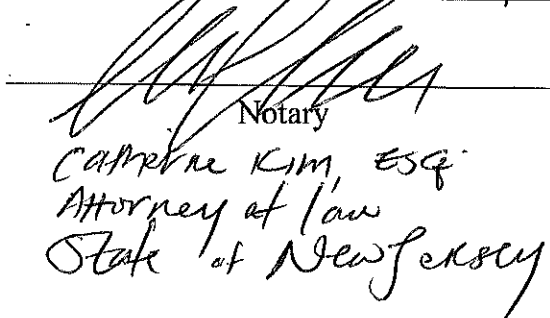 Notary
Catherine Kim, Esq.
Attorney at law
State of New Jersey